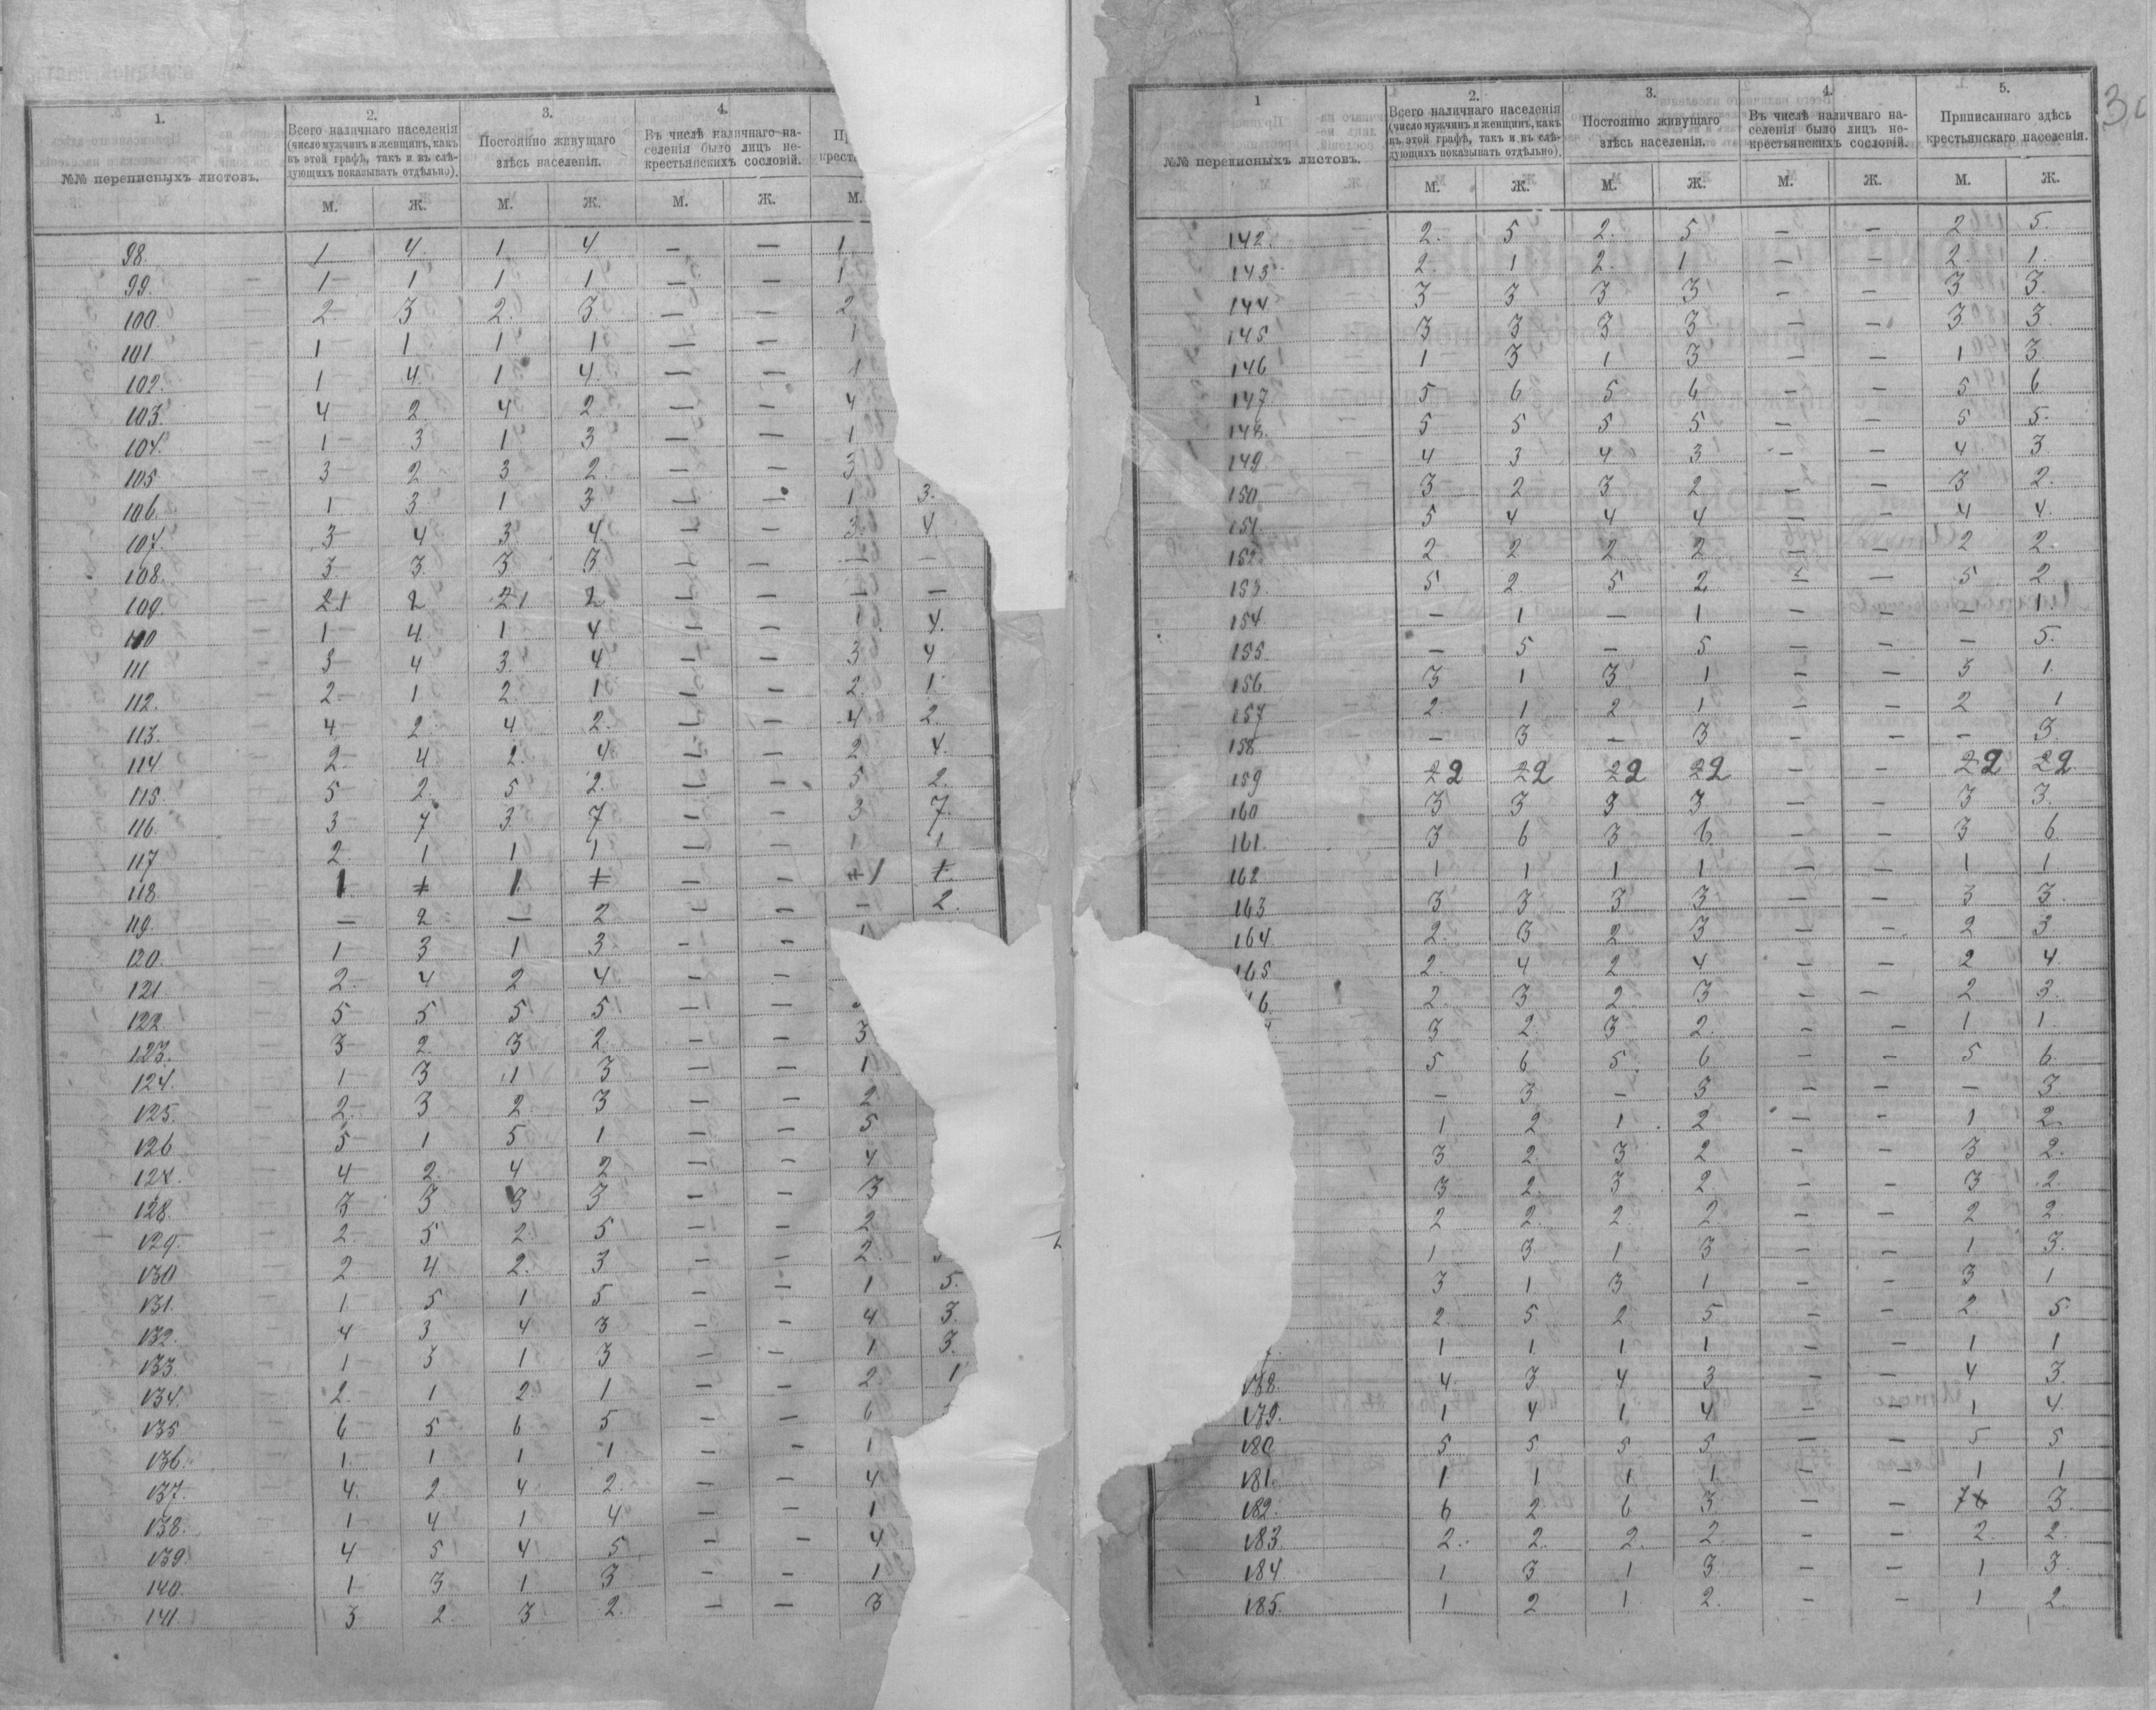 1. 2. 3. 4.
№№ переписныхъ листовъ. Всего наличнаго населенія (число мужчинъ и женщинъ, какъ въ этой графѣ, такъ и въ слѣдующихъ показывать отдѣльно). Постоянно живущаго здѣсь населенія. Въ числѣ наличнаго населенія было лицъ некрестьянскихъ сословій.
М. Ж. М. Ж. М. Ж. М.
98. 1 4 1 4 — — 1
99. 1 1 1 1 — — 1
100. 2 3 2. 3. — — 2
101 1 1 1 1 — — 1
102. 1 4. 1 4. — — 1
103. 4 2 4 2 — — 4
104. 1 3 1 3 — — 1
105 3 2 3 2. — — 3
106. 1 3 1 3 — — 1 3.
107. 3 4 3 4 — — 3. 4.
108. 3 3. 3 3 — — — —
109. 21 2 21 2 — — — —
110 1 4 1 4 — — 1. 4.
111 3 4 3. 4 — — 3 4
112. 2. 1 2 1 — — 2. 1
113. 4 2 4 2. — — 4 2.
114 2 4 2. 4. — — 2. 4.
115. 5 2. 5 2. — — 5 2.
116. 3 7 3. 7 — — 3 7.
117 2. 1 1 1 — — 1 1
118. 1 1. — — 1
119. — 2 — 2 — — — 2.
120. 1 3 1 3 — —
121 2. 4 2 4 — —
122 5 5 5 5 — —
123. 3 2. 3 2 — — 3.
124. 1 3 1 3 — — 1
125. 2. 3 2. 3 — — 2
126 5 1 5 1 — — 5
127. 4 2. 4 2 — — 4
128. 3 3. 3 3 — — 3
129. 2. 5 2. 5 — — 2
130 2 4 2. 3 — — 2.
131. 1 5 1 5 — — 1 5.
132. 4 3 4 3 — — 4 3.
133. 1 3 1 3 — — 1 3.
134. 2. 1 2 1 — — 2 1
135 6 5 6 5 — — 6
136. 1. 1 1 1 — — 1
137. 4. 2. 4 2. — — 4
138. 1 4 1 4 — — 1
139. 4 5 4 5 — — 4
140. 1 3 1 3 — — 1
141 3 2. 3 2. — — 3
1 2. 3. 4. 5.
№№ переписныхъ листовъ. Всего наличнаго населенія (число мужчинъ и женщинъ, какъ въ этой графѣ, такъ и въ слѣдующихъ показывать отдѣльно). Постоянно живущаго здѣсь населенія. Въ числѣ наличнаго населенія было лицъ некрестьянскихъ сословій. Приписаннаго здѣсь крестьянскаго населенія.
М. Ж. М. Ж. М. Ж. М. Ж.
142. 2. 5 2. 5 — — 2 5.
143 2. 1 2. 1 — — 2. 1.
144 3 3 3 3 — — 3 3.
145 3 3 3 3 — — 3 3
146 1 3 1 3 — — 1 3.
147 5 6 5 6 — — 5 6
148. 5 5 5 5 — — 5 5.
149 4 3 4 3 — — 4. 3.
150 3 2 3 2 — — 3 2.
151. 5 4 4 4 — — 4 4.
152. 2 2 2 2. — — 2 2.
153. 5 2. 5 2 — — 5 2
154 — 1 — 1 — — — 1
155 — 5 — 5 — — — 5.
156 3 1 3 1 — — 3 1.
157 2. 1 2 1 — — 2 1
158 — 3 — 3 — — — 3.
159 22 22 22 22 — — 22 22
160 3 3 3 3 — — 3 3.
161. 3 6 3 6. — — 3 6.
162 1 1 1 1 — — 1 1
163 3 3 3 3 — — 3 3.
164. 2. 3 2 3 — — 2 3
165 2. 4 2 4 — — 2 4.
2. 3 2. 3 — — 2 3.
3 2. 3 2. — — 1. 1.
5 6 5. 6 — — 5 6.
— 3 — 3 — — — 3.
1 2 1 2 — — 1 2.
3 2. 3 2 — — 3 2.
3 2. 3 2. — — 3 2.
2 2. 2. 2 — — 2 2.
1 3 1 3 — — 1 3.
3 1 3 1 — — 3 1
2. 5 2. 5 — — 2. 5
1 1 1 1 — — 1 1
178. 4. 3 4 3 — — 4 3.
179. 1 4 1 4 — — 1 4.
180 5 5 5 5 — — 5 5
181. 1 1 1 1 — — 1 1
182. 6 2 6 3 — — 7 3.
183 2. 2. 2. 2. — — 2. 2.
184 1 3 1 3 — — 1 3.
185. 1 2 1 2. — — 1 2.